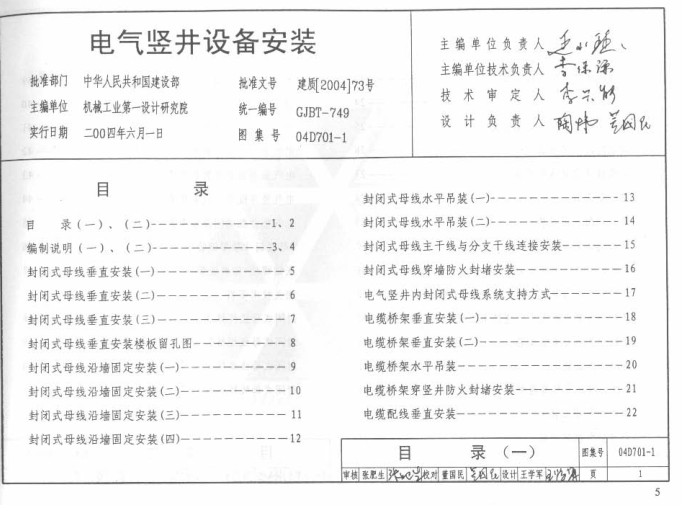 电气竖井设备安装
批准部门 中华人民共和国建设部 批准文号 建质[2004]73号
主编单位 机械工业第一设计研究院 统一编号 GJBT-749
实行日期 二00四年六月一日 图集号 04D701-1
主编单位负责人
主编单位技术负责人
技术审定人
设计负责人
目 录
目 录(一)、(二)----------1、2
编制说明(一)、(二)----------3、4
封闭式母线垂直安装(一)----------5
封闭式母线垂直安装(二)----------6
封闭式母线垂直安装(三)----------7
封闭式母线垂直安装楼板留孔图----------8
封闭式母线沿墙固定安装(一)----------9
封闭式母线沿墙固定安装(二)----------10
封闭式母线沿墙固定安装(三)----------11
封闭式母线沿墙固定安装(四)----------12
封闭式母线水平吊装(一)----------13
封闭式母线水平吊装(二)----------14
封闭式母线主干线与分支干线连接安装----------15
封闭式母线穿墙防火封堵安装----------16
电气竖井内封闭式母线系统支持方式----------17
电缆桥架垂直安装(一)----------18
电缆桥架垂直安装(二)----------19
电缆桥架水平吊装----------20
电缆桥架穿竖井防火封堵安装----------21
电缆配线垂直安装----------22
目 录(一) 图集号 04D701-1
审核 张肥生 校对 董国民 设计 王学军 页 1
5